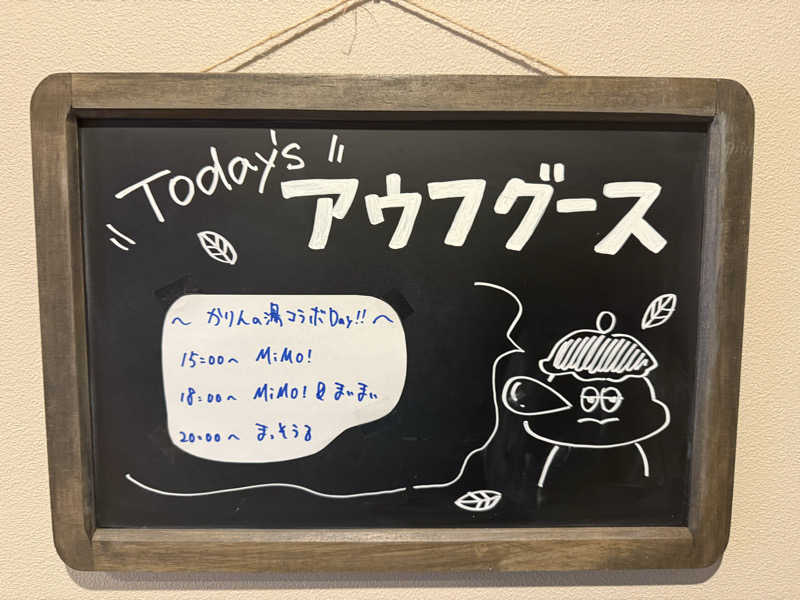 "Today's"
アウフグース
～かりんの湯コラボDay!!～
15:00～ MiMO!
18:00～ MiMO! & まぃまぃ
20:00～ まっそうる